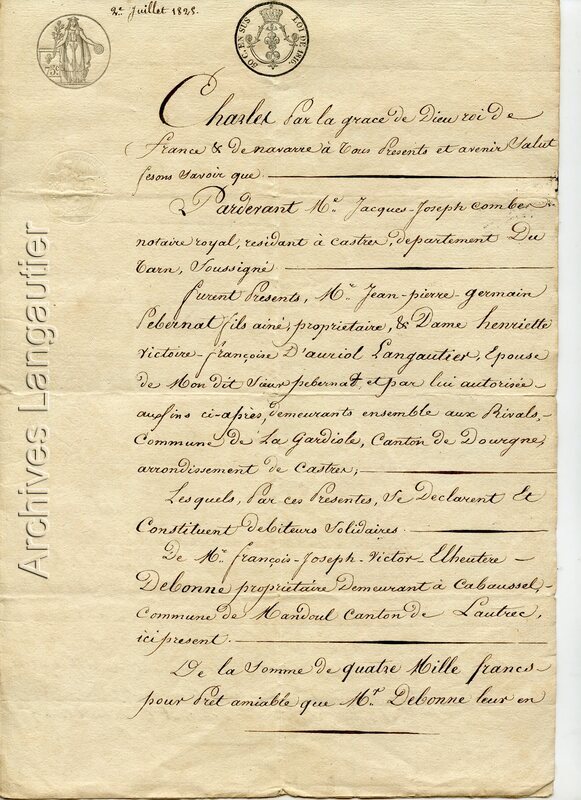 2.e Juillet 1825.
75c
50 C. EN SUS
LOI DE 1816.
Charles Par la grace de Dieu roi de
france & de navarre à tous Presents et avenir Salut
fesons savoir que
Pardevant Me. Jacques-Joseph combes
notaire royal, residant à castres, departement Du
tarn, Soussigné
furent Presents, Mr. Jean-pierre-germain
Pebernat fils ainé, proprietaire, & Dame henriette
victoire-françoise D'auriol Langautier, Epouse
de Mon dit Sieur pebernat, et par lui autorisée
aux fins ci-après, demeurants ensemble aux Rivals,
Commune de La Gardiole, Canton de Dourgne,
arrondissement de castres,
Lesquels, Par ces Presentes, Se Declarent Et
Constituent debiteurs Solidaires
De Mr. françois-Joseph-Victor Elheutere
Debonne proprietaire Demeurant à Cabaussel,
Commune de Mandoul canton de Lautrec,
ici present.
De la Somme de quatre Mille francs
pour Prêt amiable que Mr. Debonne leur en
Archives Langautier